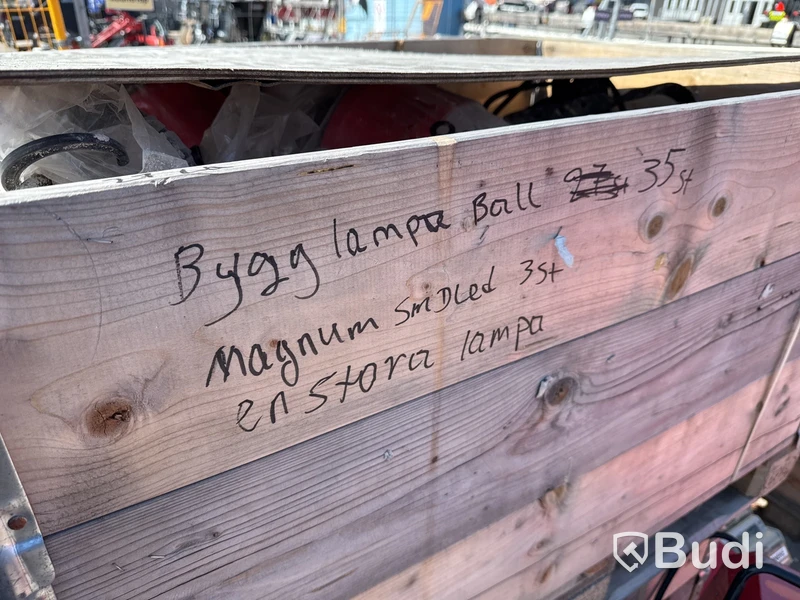 Bygg lampa Ball 35st
Magnum SMDLed 3st
en stora lampa
Budi